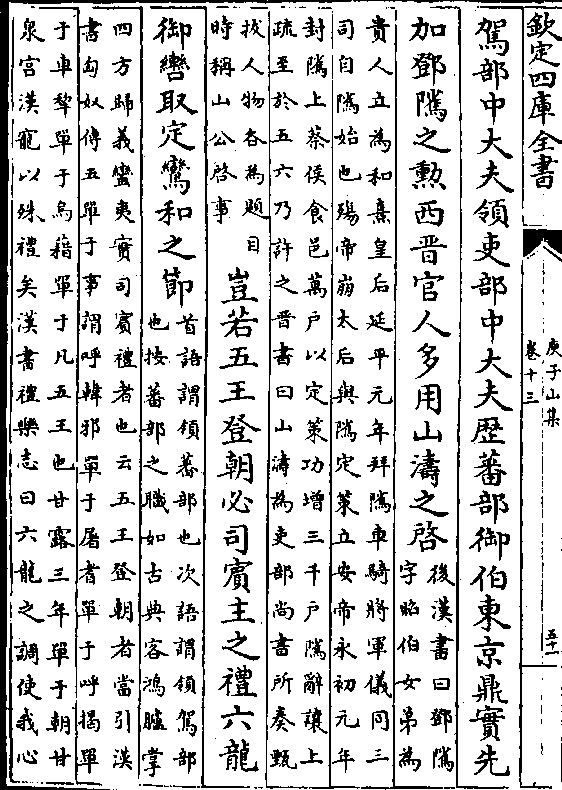 欽定四庫全書
庾子山集
卷十三
五十一
駕部中大夫領吏部中大夫歴蕃部御伯東京鼎實先
加鄧隲之勲西晋官人多用山濤之啓
後漢書曰鄧隲
字昭伯女弟為
貴人立為和熹皇后延平元年拜隲車騎將軍儀同三
司自隲始也殤帝崩太后與隲定策立安帝永初元年
封隲上蔡侯食邑萬戸以定策功增三千戸隲辭讓上
疏至於五六乃許之晋書曰山濤為吏部尚書所奏甄
拔人物各為題目
時稱山公啓事
豈若五王登朝必司賓主之禮六龍
御轡取定鸞和之節
首語謂領蕃部也次語謂領駕部
也按蕃部之職如古典客鴻臚掌
四方歸義蠻夷實司賓禮者也云五王登朝者當引漢
書匈奴傳五單于事謂呼韓邪單于屠耆單于呼揭單
于車犂單于烏藉單于凡五王也甘露三年單于朝甘
泉宫漢寵以殊禮矣漢書禮樂志曰六龍之調使我心